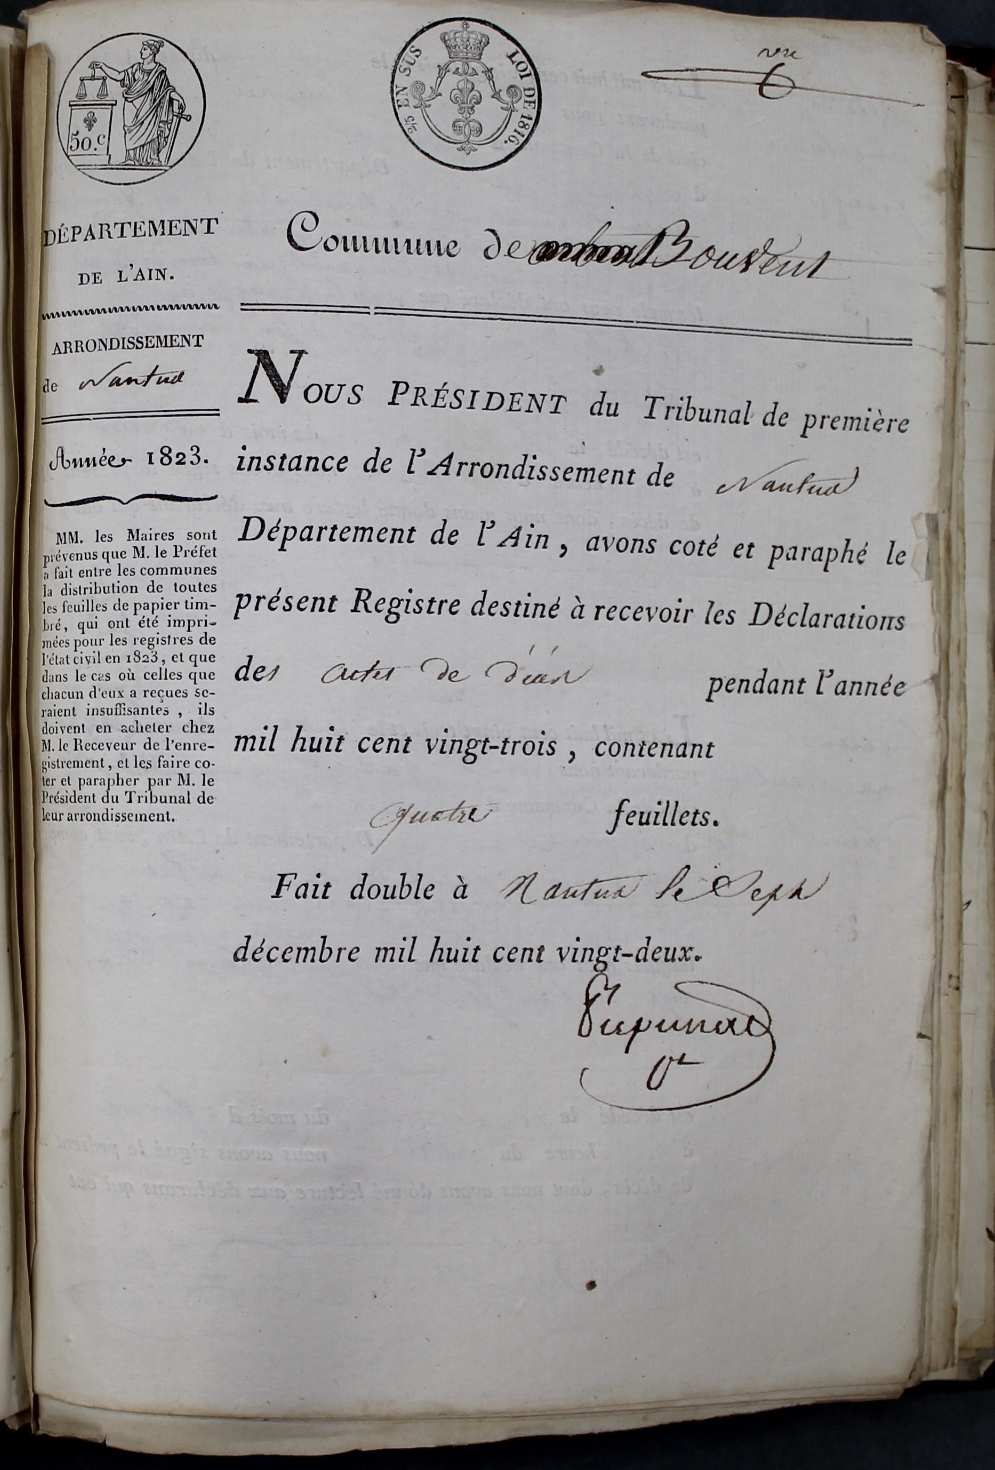 50.c
2/5 EN SUS
LOI DE 1816.
6
DÉPARTEMENT
DE L'AIN.
ARRONDISSEMENT
de Nantua
Année 1823.
MM. les Maires sont
prévenus que M. le Préfet
a fait entre les communes
la distribution de toutes
les feuilles de papier tim-
bré, qui ont été impri-
mées pour les registres de
l'état civil en 1823, et que
dans le cas où celles que
chacun d'eux a reçues se-
raient insuffisantes, ils
doivent en acheter chez
M. le Receveur de l'enre-
gistrement, et les faire co-
ter et parapher par M. le
Président du Tribunal de
leur arrondissement.
Commune de Bouvent
NOUS PRÉSIDENT du Tribunal de première
instance de l'Arrondissement de Nantua
Département de l'Ain, avons coté et paraphé le
présent Registre destiné à recevoir les Déclarations
des actes de décès pendant l'année
mil huit cent vingt-trois, contenant
quatre feuillets.
Fait double à Nantua le Sept
décembre mil huit cent vingt-deux.